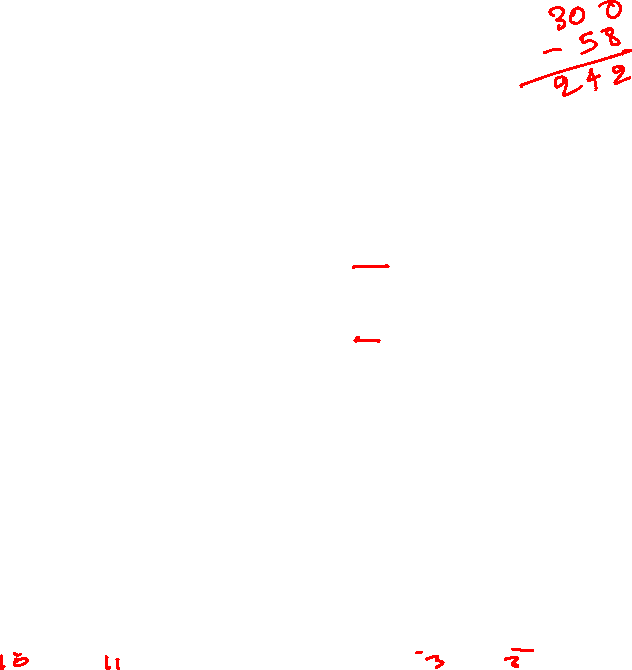 300
- 58
242
—
—
10 11 -3 -2